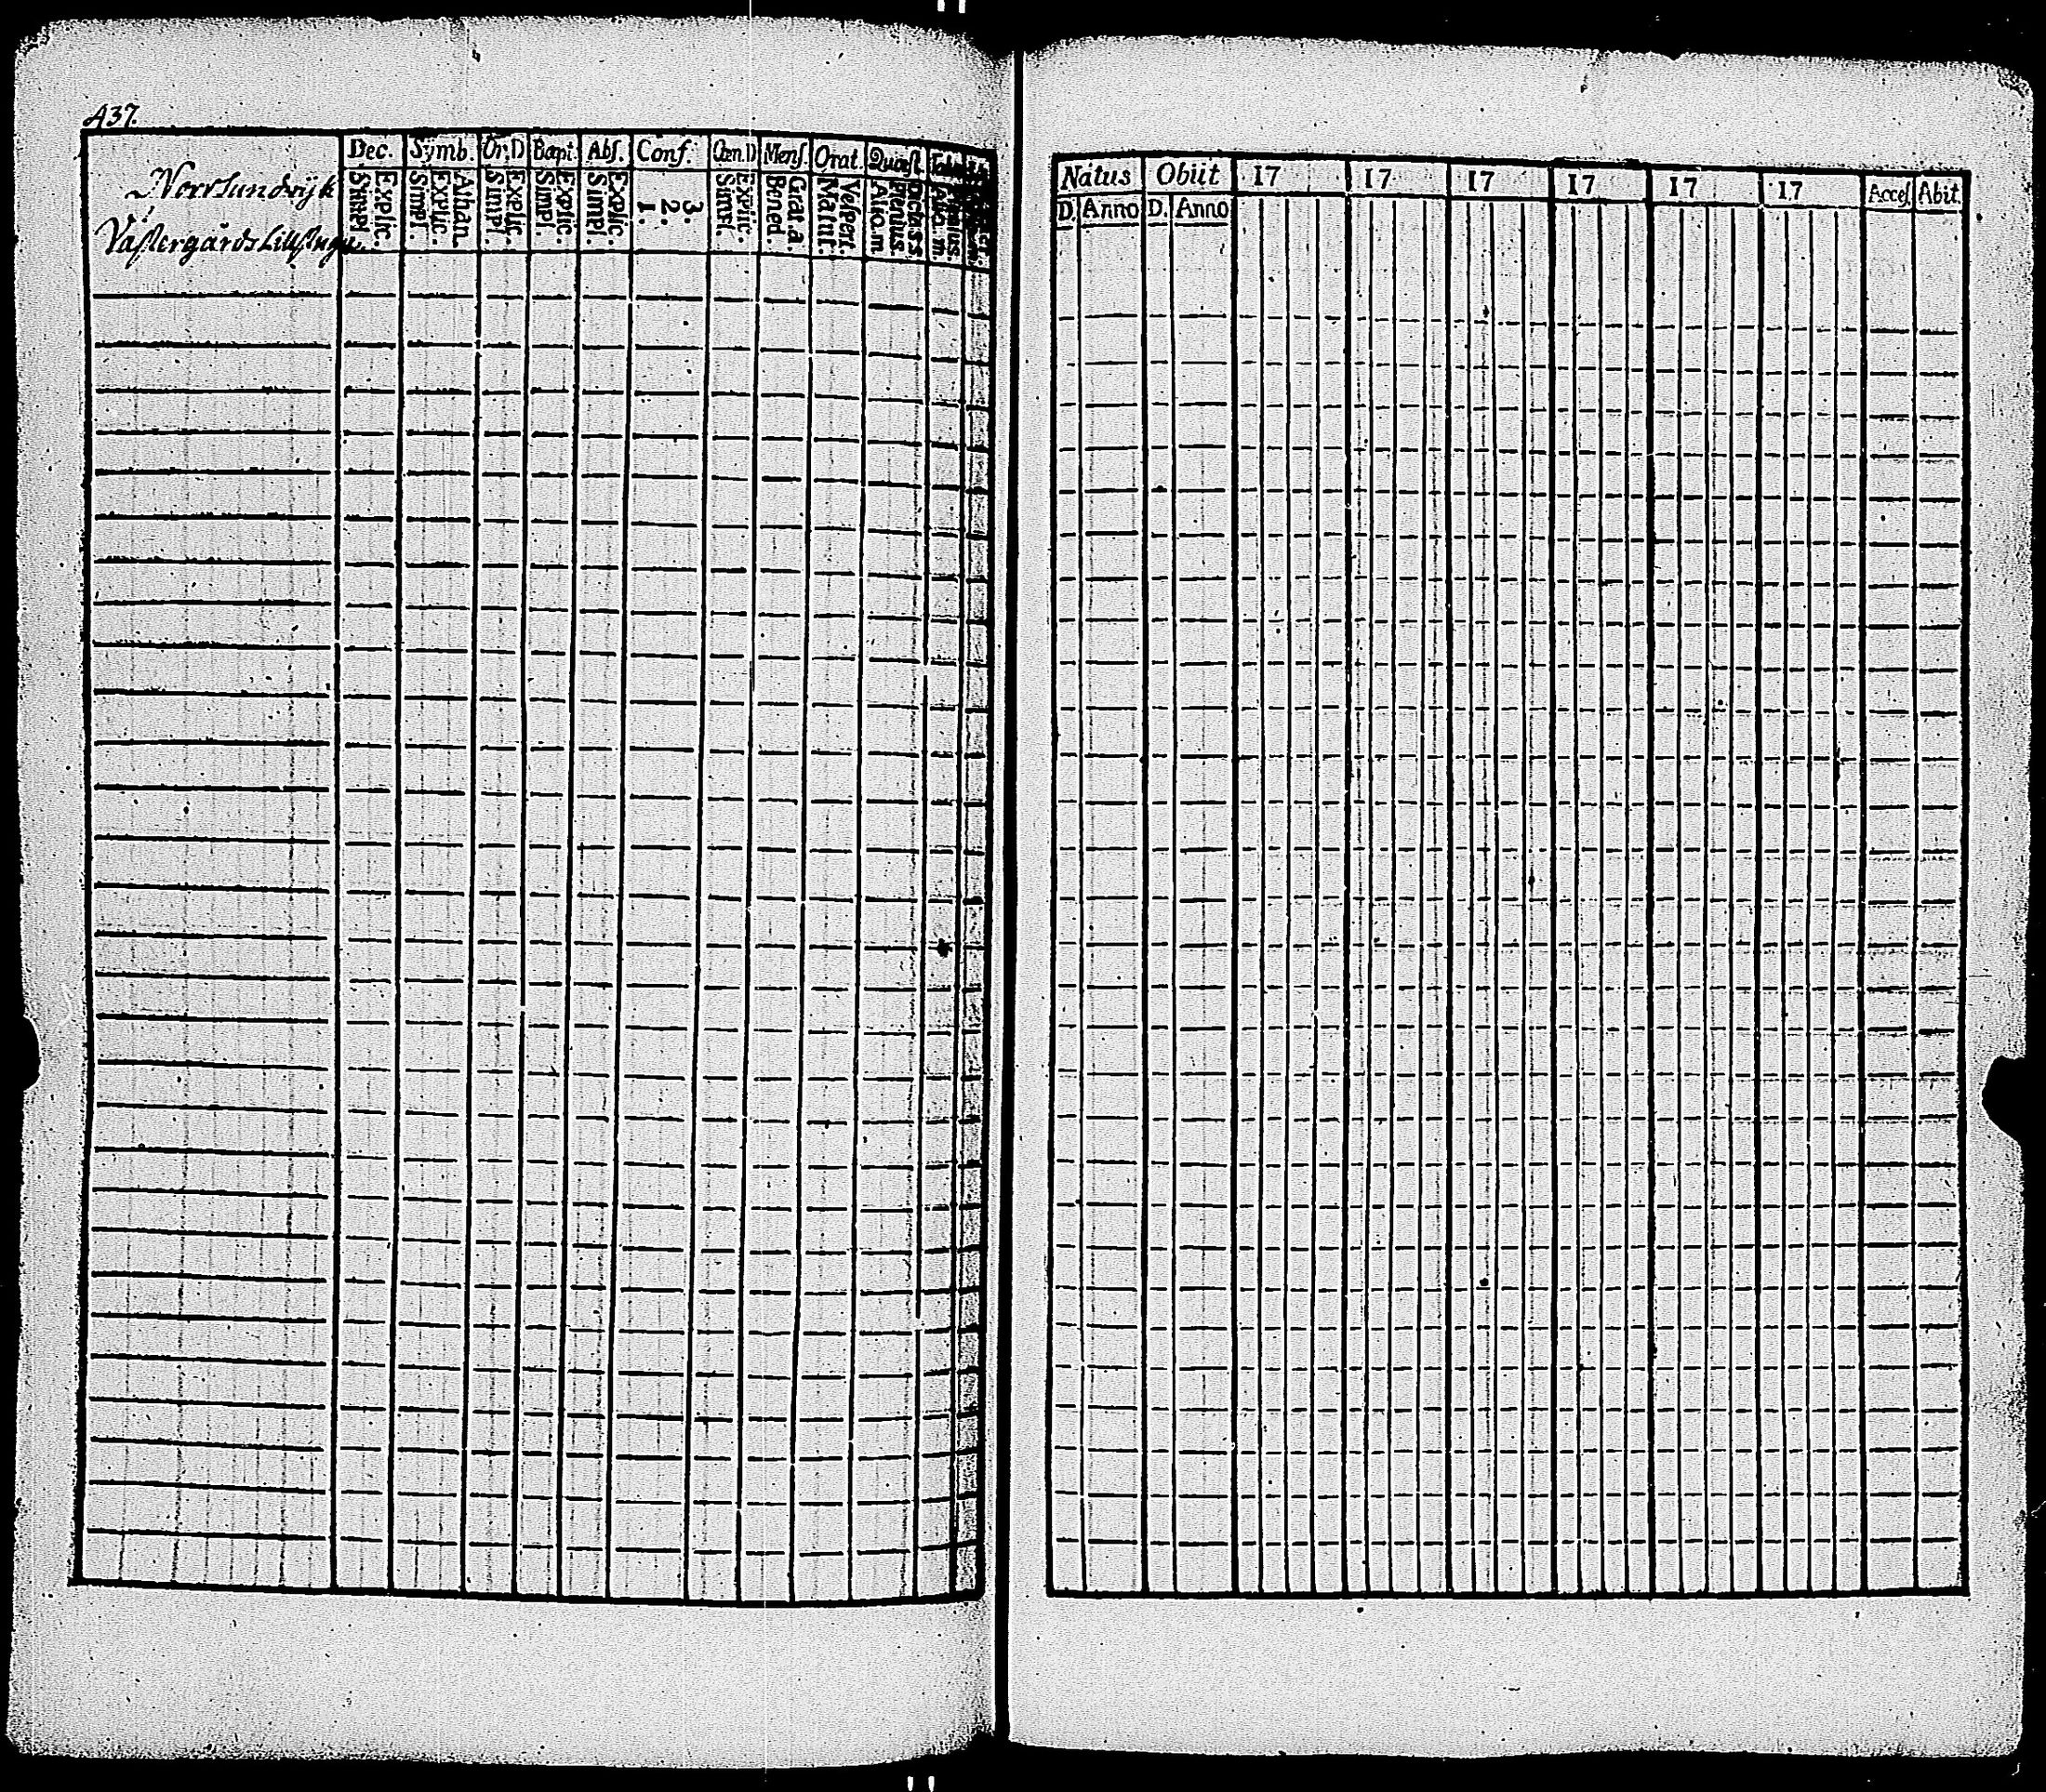 437.
Norrsundwijk
Västergårds
Dec. Symb. Or. D Bapt. Abs. Conf. Cœn. D Mens. Orat. Quæst.
Explic. Simpl.
Athan. Explic. Simpl.
Explic. Simpl.
Explic. Simpl.
Explic. Simpl.
3. 2. 1.
Explic. Simpl.
Grat. a. Bened.
Vesperi. Matut.
Dictis ss plenius Aliq. m
Natus Obiit 17 17 17 17 17 17 Acces. Abit.
D. Anno D. Anno